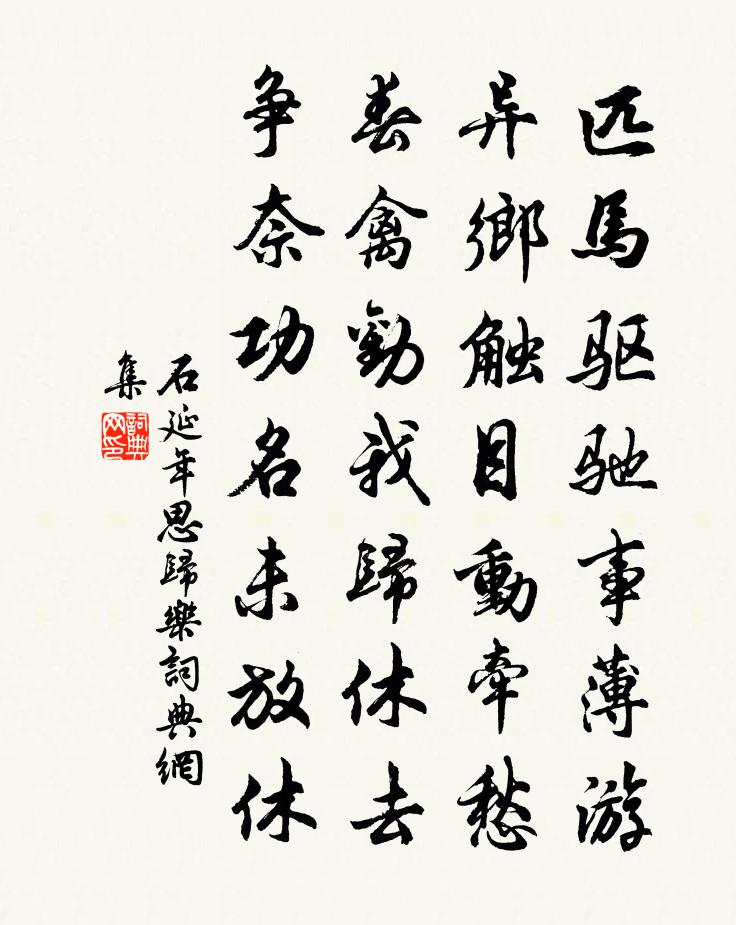 匹馬驱驰事薄游
异鄉触目動牽愁
春禽勸我歸休去
争奈功名未放休
石延年思歸樂詞典網
集
詞典网印